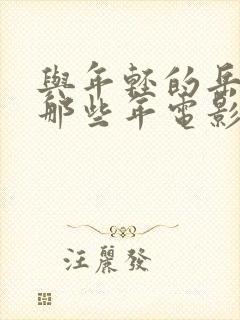 與年輕的岳
那些年電影
汪麗發